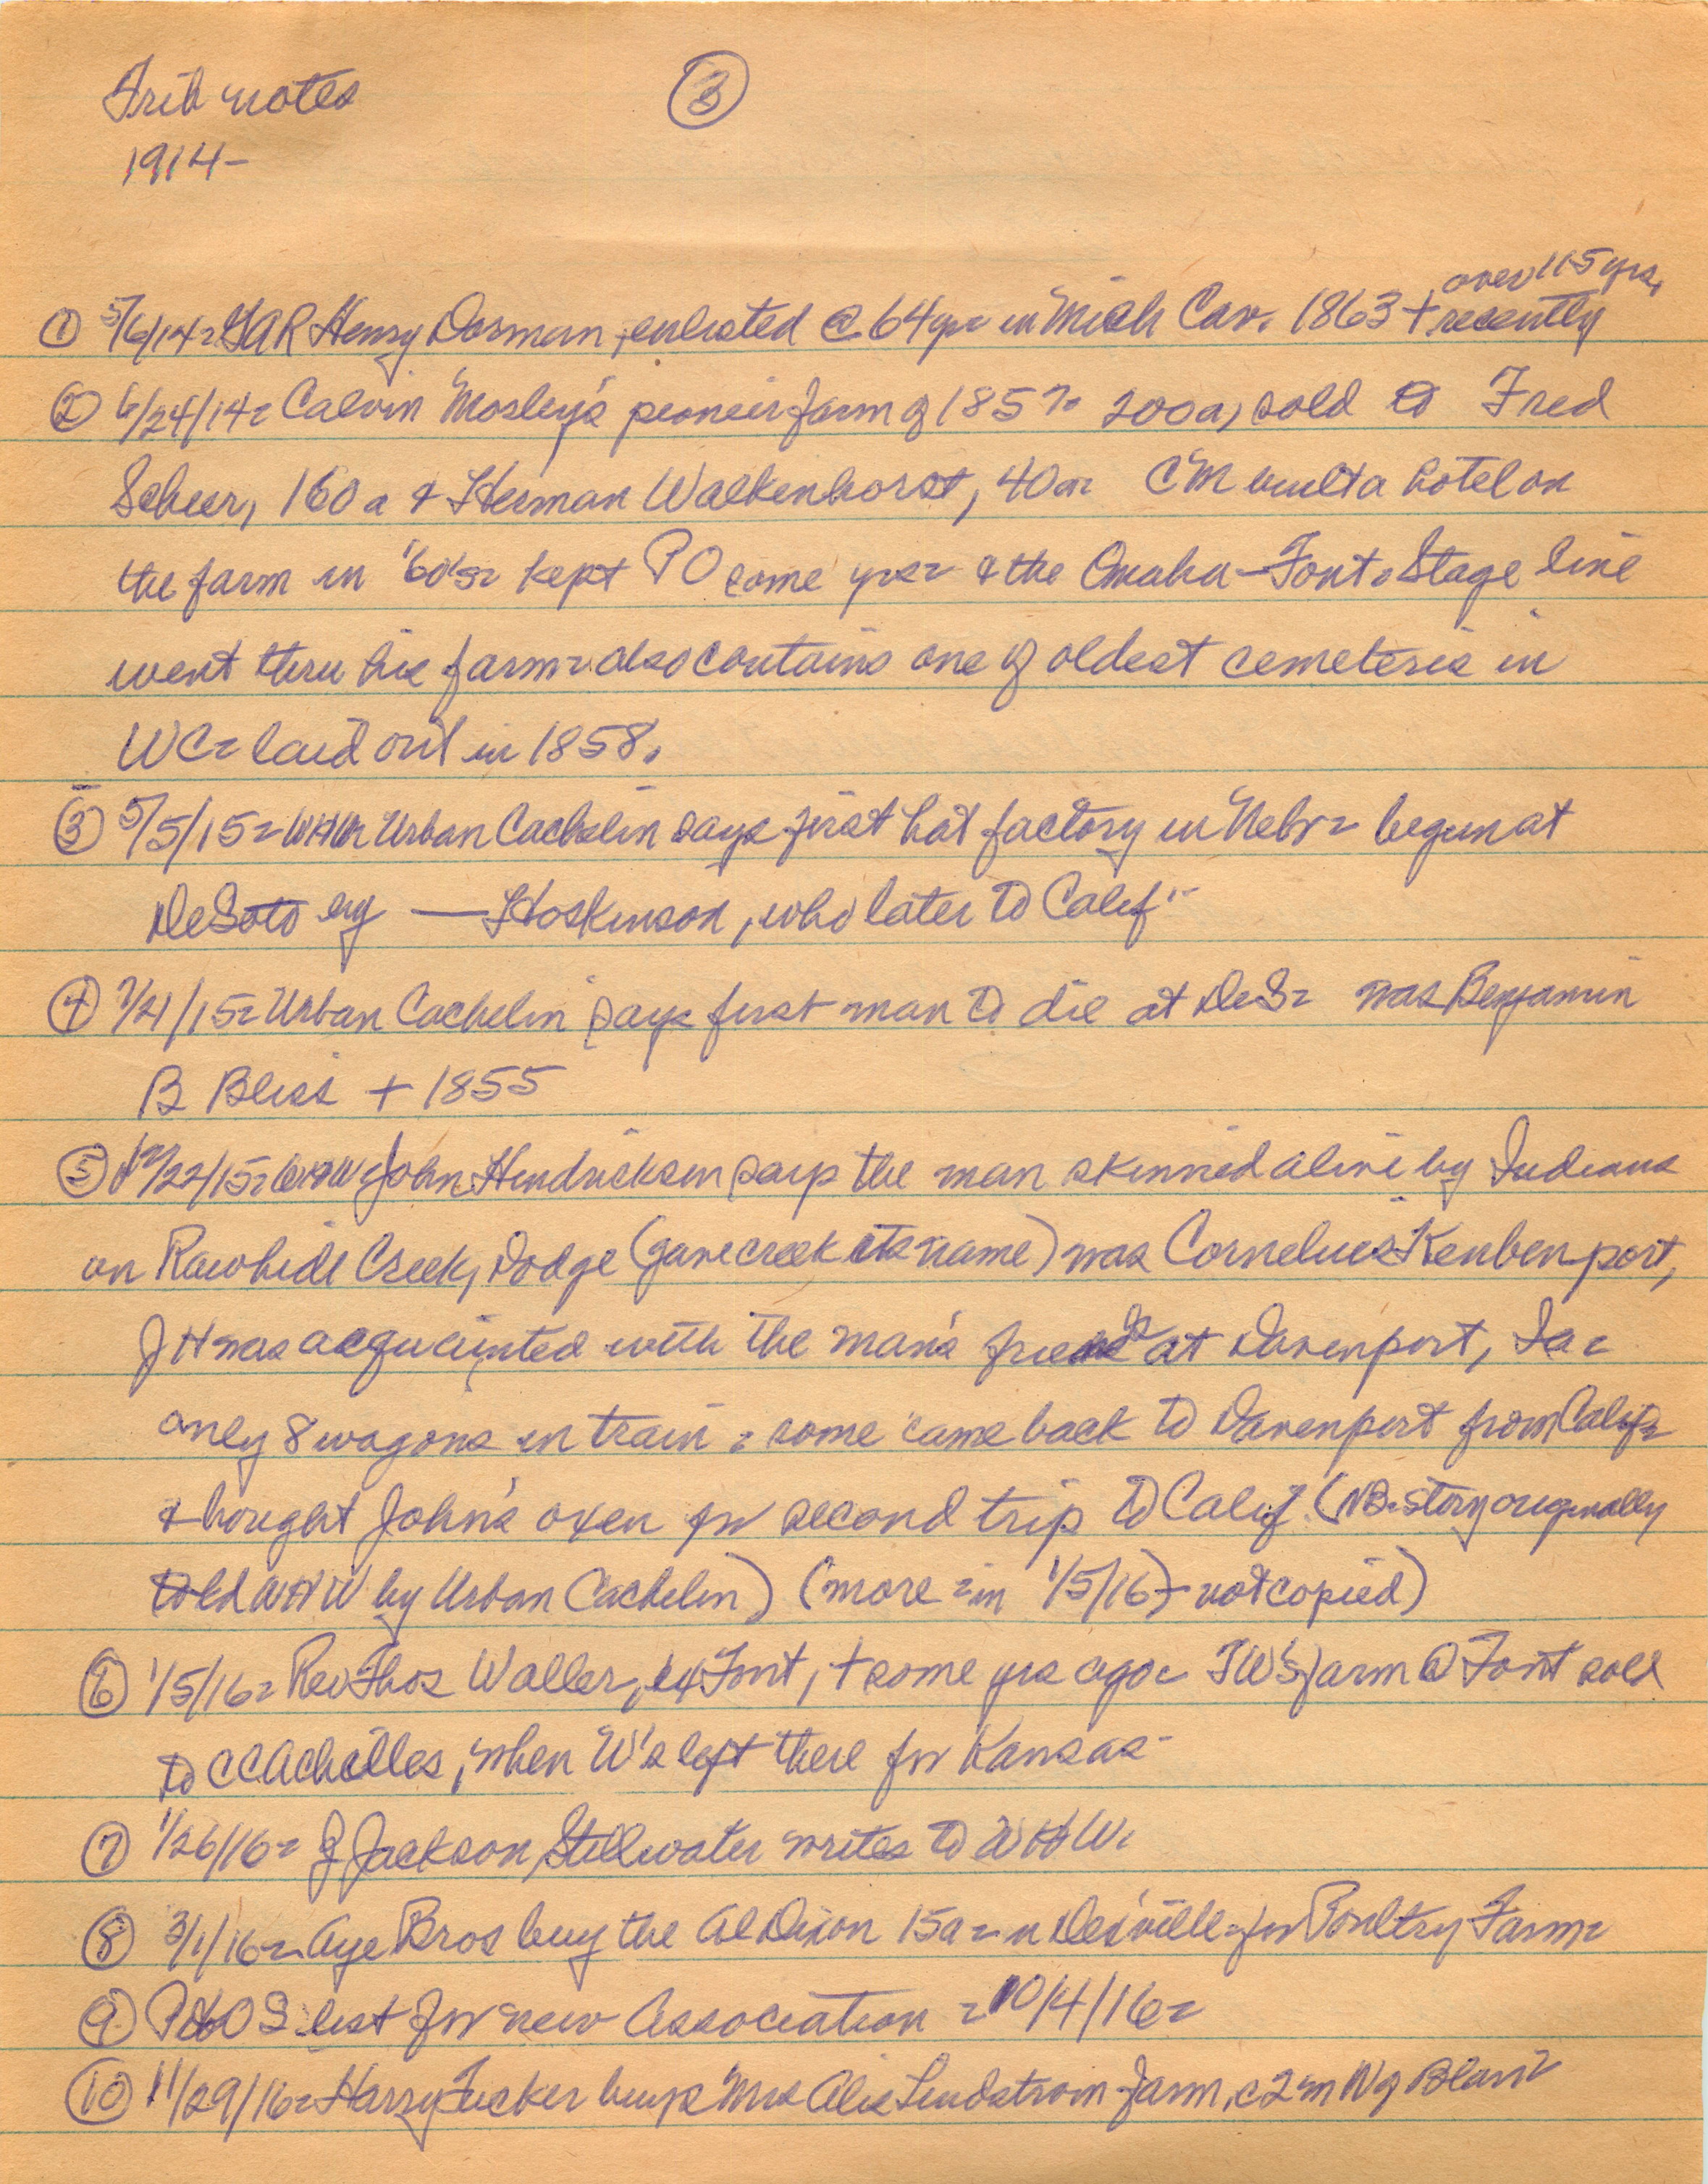 Trib notes
③
1914-
over 115 yrs,
① 5/6/14= GAR Henry Dorman, enlisted @ 64 yrs in Mich Cav. 1863 + recently
② 6/24/14= Calvin Mosley's pioneer farm of 1857= 200a, sold to Fred
Scheer, 160 a & Herman Walkenhorst, 40a= CM built a hotel on
the farm in '60's= kept PO some yrs= & the Omaha-Font. Stage line
went thru his farm= also contains one of oldest cemeteris in
WC= laid out in 1858.
③ 5/5/15= WHW Urban Cachelin says first hat factory in Nebr= begun at
DeSoto by — Hoskinson, who later to Calif"
④ 7/21/15= Urban Cachelin says first man to die at DeS= was Benjamin
B Bliss + 1855
⑤ 12/22/15= WHW= John Hendricksen says the man skinned alive by Indians
on Rawhide Creek, Dodge (gave creek its name) was Cornelius Keubenport,
JH was acquainted with the man's friends at Davenport, Ia=
only 8 wagons in train = some came back to Davenport from Calif=
& bought John's oxen for second trip to Calif. (NB-story originally
told WHW by Urban Cachelin) (more = in 1/5/16)- not copied)
⑥ 1/5/16= Rev Thos Waller, ex Font, + some yrs ago= TW's farm @ Font sold
to CC Achilles, when W's left there for Kansas-
⑦ 1/26/16= J Jackson, Stillwater writes to WHW.
⑧ 3/1/16= Aye Bros buy the Al Dixon 15a= n Des'ville= for Poultry Farm=
⑨ P&OS list for new Association = 10/4/16=
⑩ 11/29/16= Harry Tucker buys Mrs Alis Lindstrom farm, c 2 m N of Blair=